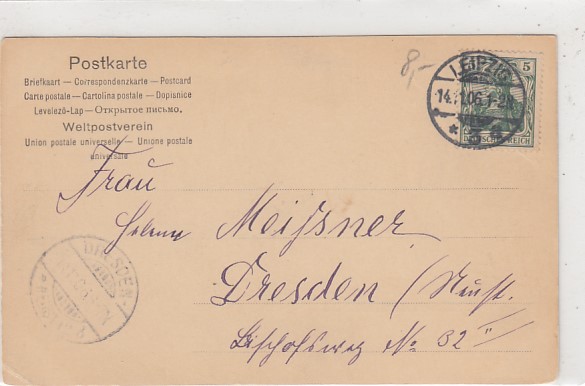 Postkarte
Briefkaart — Correspondenzkarte — Postcard
Carte postale — Cartolina postale — Dopisnice
Levelező-Lap — Открытое письмо.
Weltpostverein
Union postale universelle — Unione postale
universale
8,-
LEIPZIG
14.11.06.
5
DEUTSCHES REICH
Frau
Helene Meißner
Dresden / Neust.
Bischofsweg No 32 II
DRESDEN